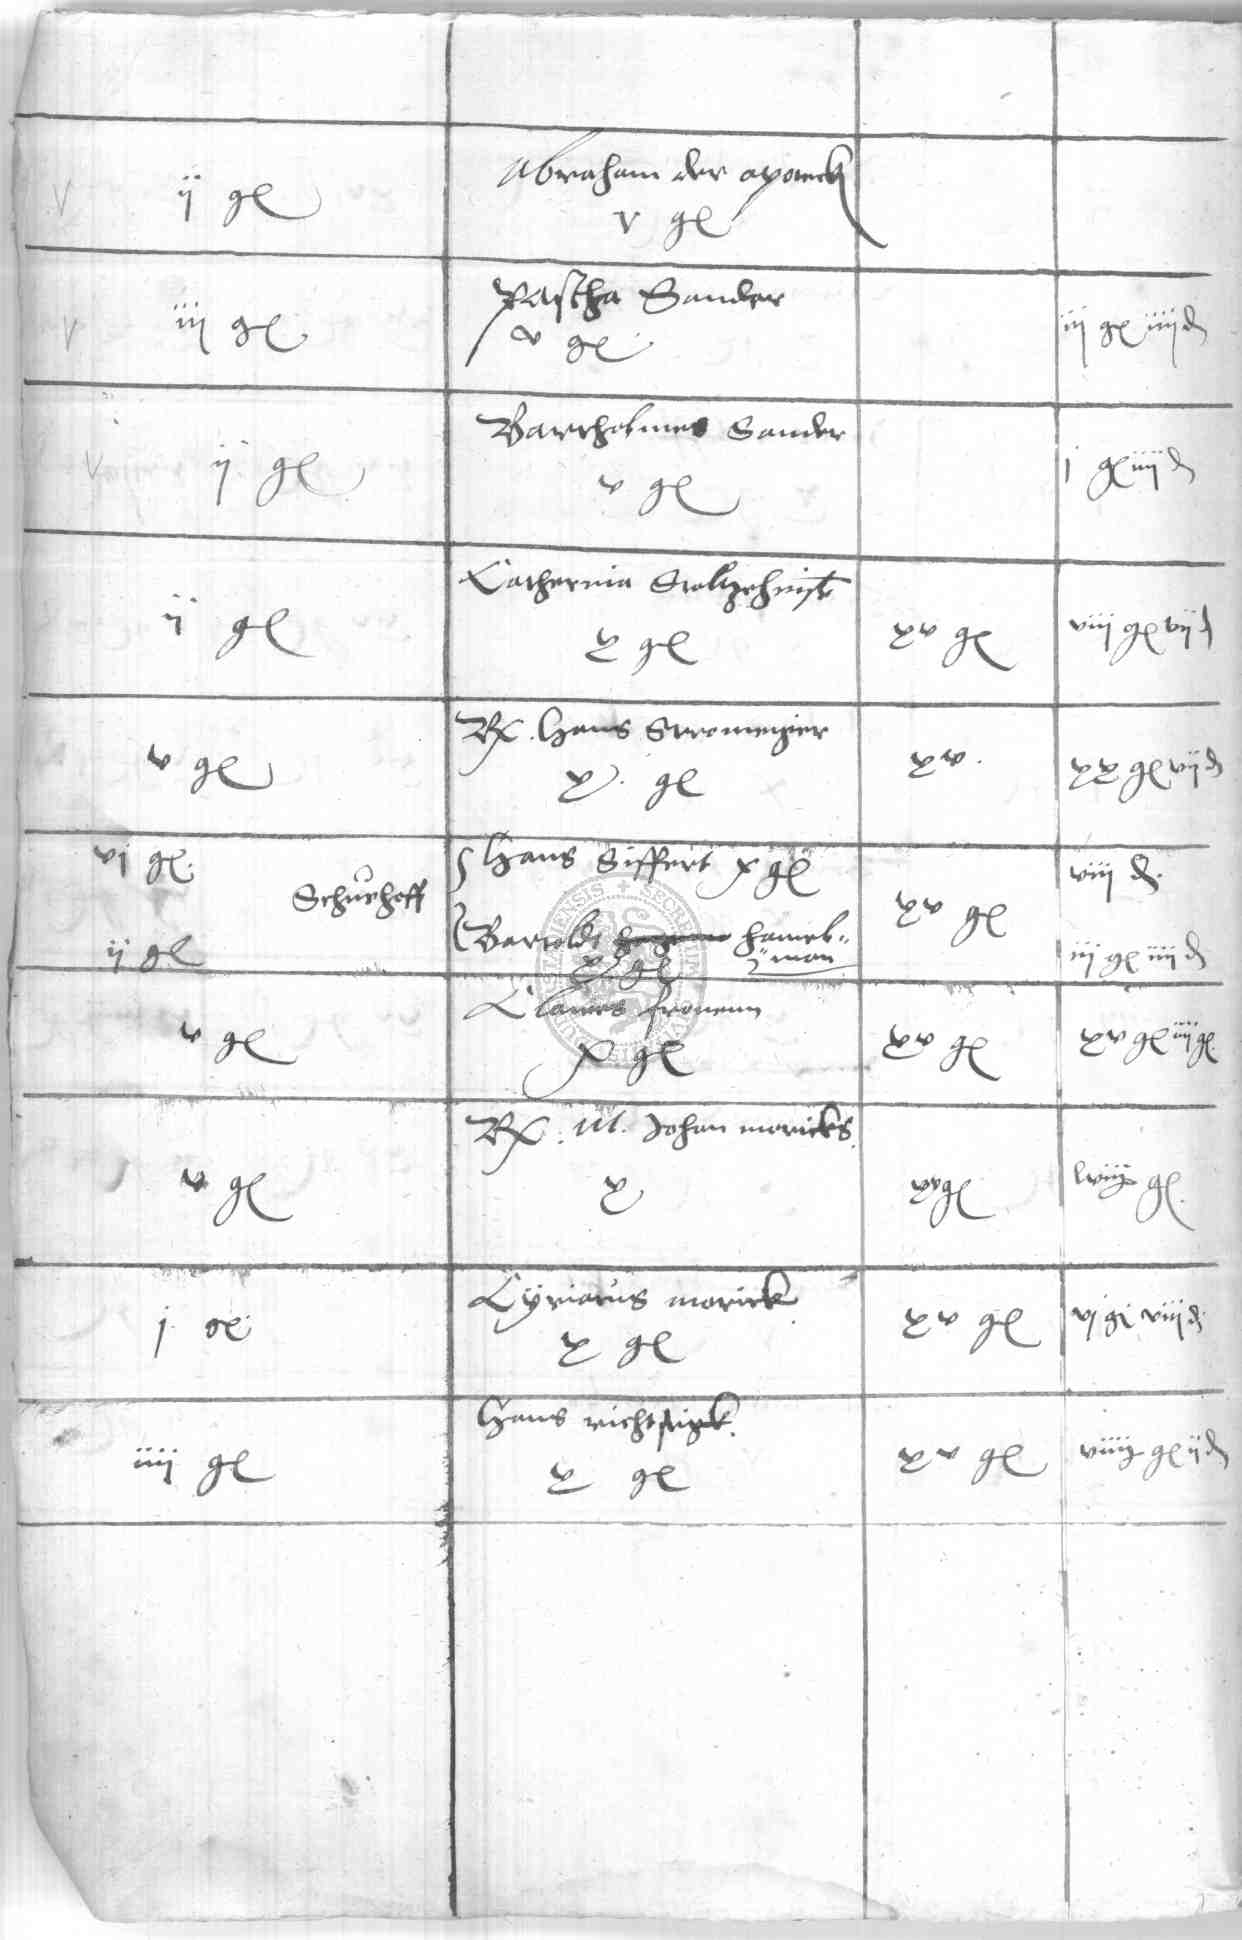 v ij gl Abraham der apoteck
v gl
v iij gl Pascha Sander iij gl iiij d
v gl
v ij gl Barthelmes Sander j gl iiij d
v gl
ij gl Catherina xv gl viij gl vij d
x gl
v gl Rx. Hans Stromeyier xv. xx gl vij d
x. gl
vj gl. Hans Siffert x gl viij d.
Schurhoff xv gl
ij gl Bartoldt hamel=
man iij gl iiij d
x gl
v gl Clawes fronenn xv gl xv gl iiij gl.
x gl
v gl Rx. M. Johan moricks. xv gl lviij gl.
x
j gl Cyriacus morick xv gl vj gl viij d.
x gl
iiij gl Hans xv gl viiij gl ij d
x gl